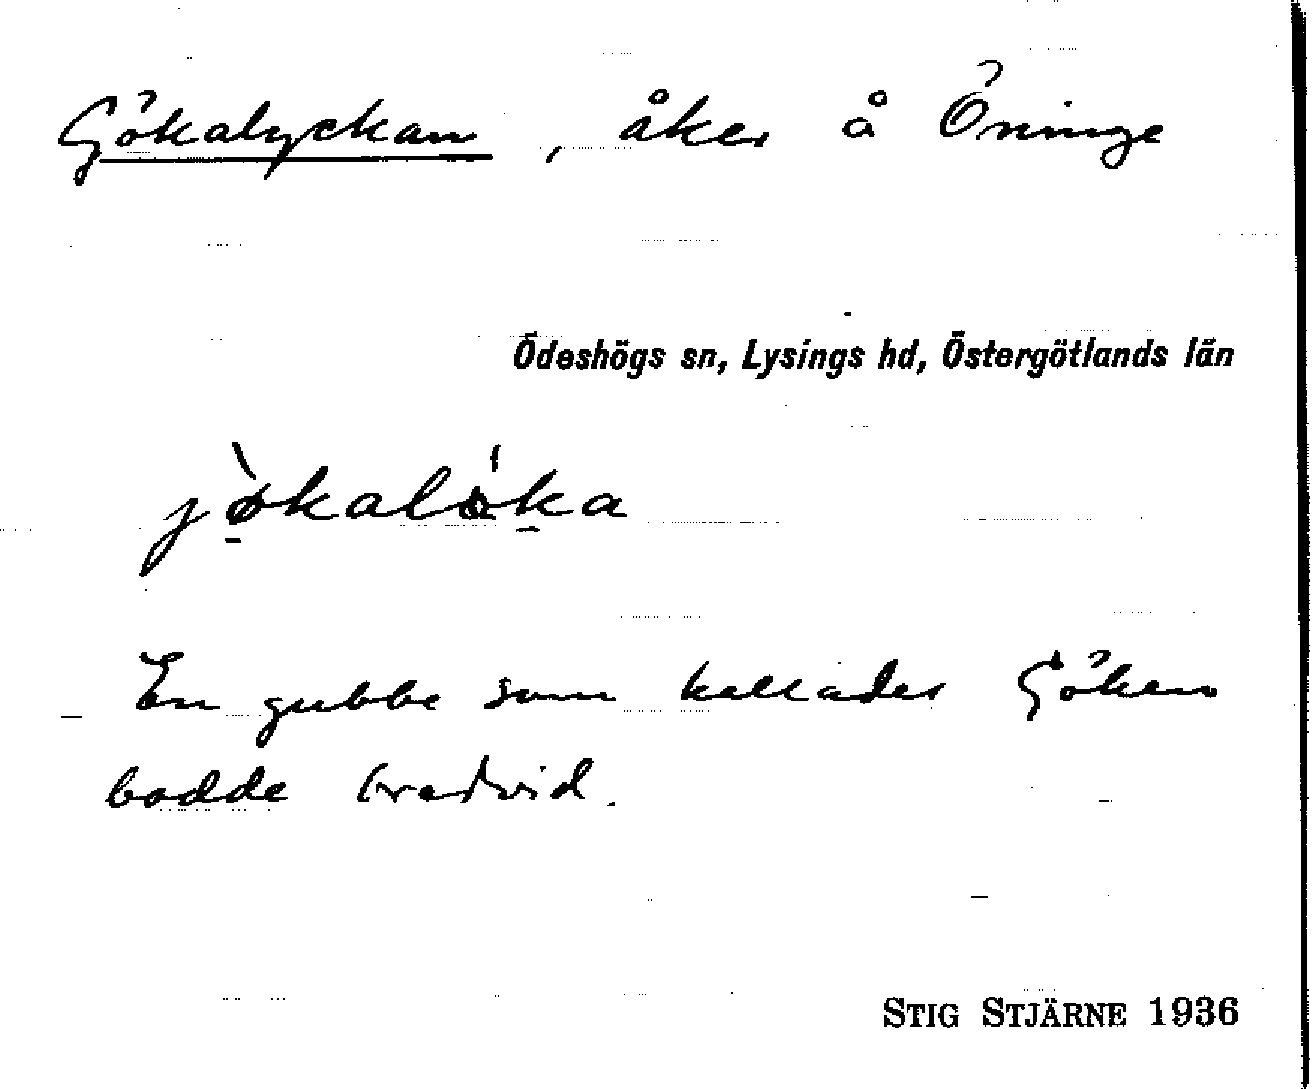 Gökalyckan, åker å Öninge
Ödeshögs sn, Lysings hd, Östergötlands län
jø̀kalö́ka
En gubbe som kallades Göken
bodde bredvid.
STIG STJÄRNE 1936